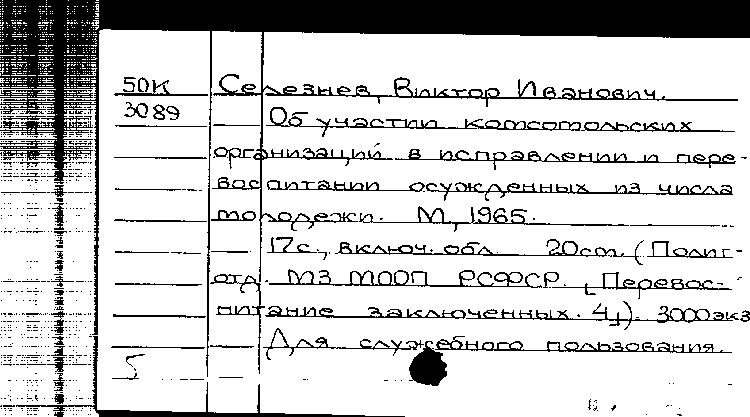 50К Селезнев, Виктор Иванович.
3089 Об участии комсомольских
организаций в исправлении и пере-
воспитании осужденных из числа
молодежи. М, 1965.
17с., включ. обл 20см. (Полит-
отд. МЗ МООП РСФСР. [Перевос-
питание заключенных. 4]). 3000экз
Для служебного пользования.
5